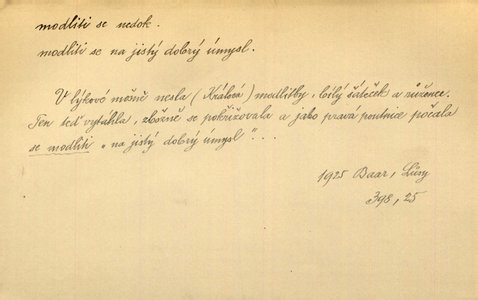 modliti se nedok.
modliti se na jistý dobrý úmysl.
V lýkové mošně nesla (Králová) modlitby, bílý šáteček a růženec.
Ten teď vytáhla, zbožně se pokřižovala a jako pravá poutnice počala
se modliti „na jistý dobrý úmysl"...
1925 Baar, Lůsy
398, 25